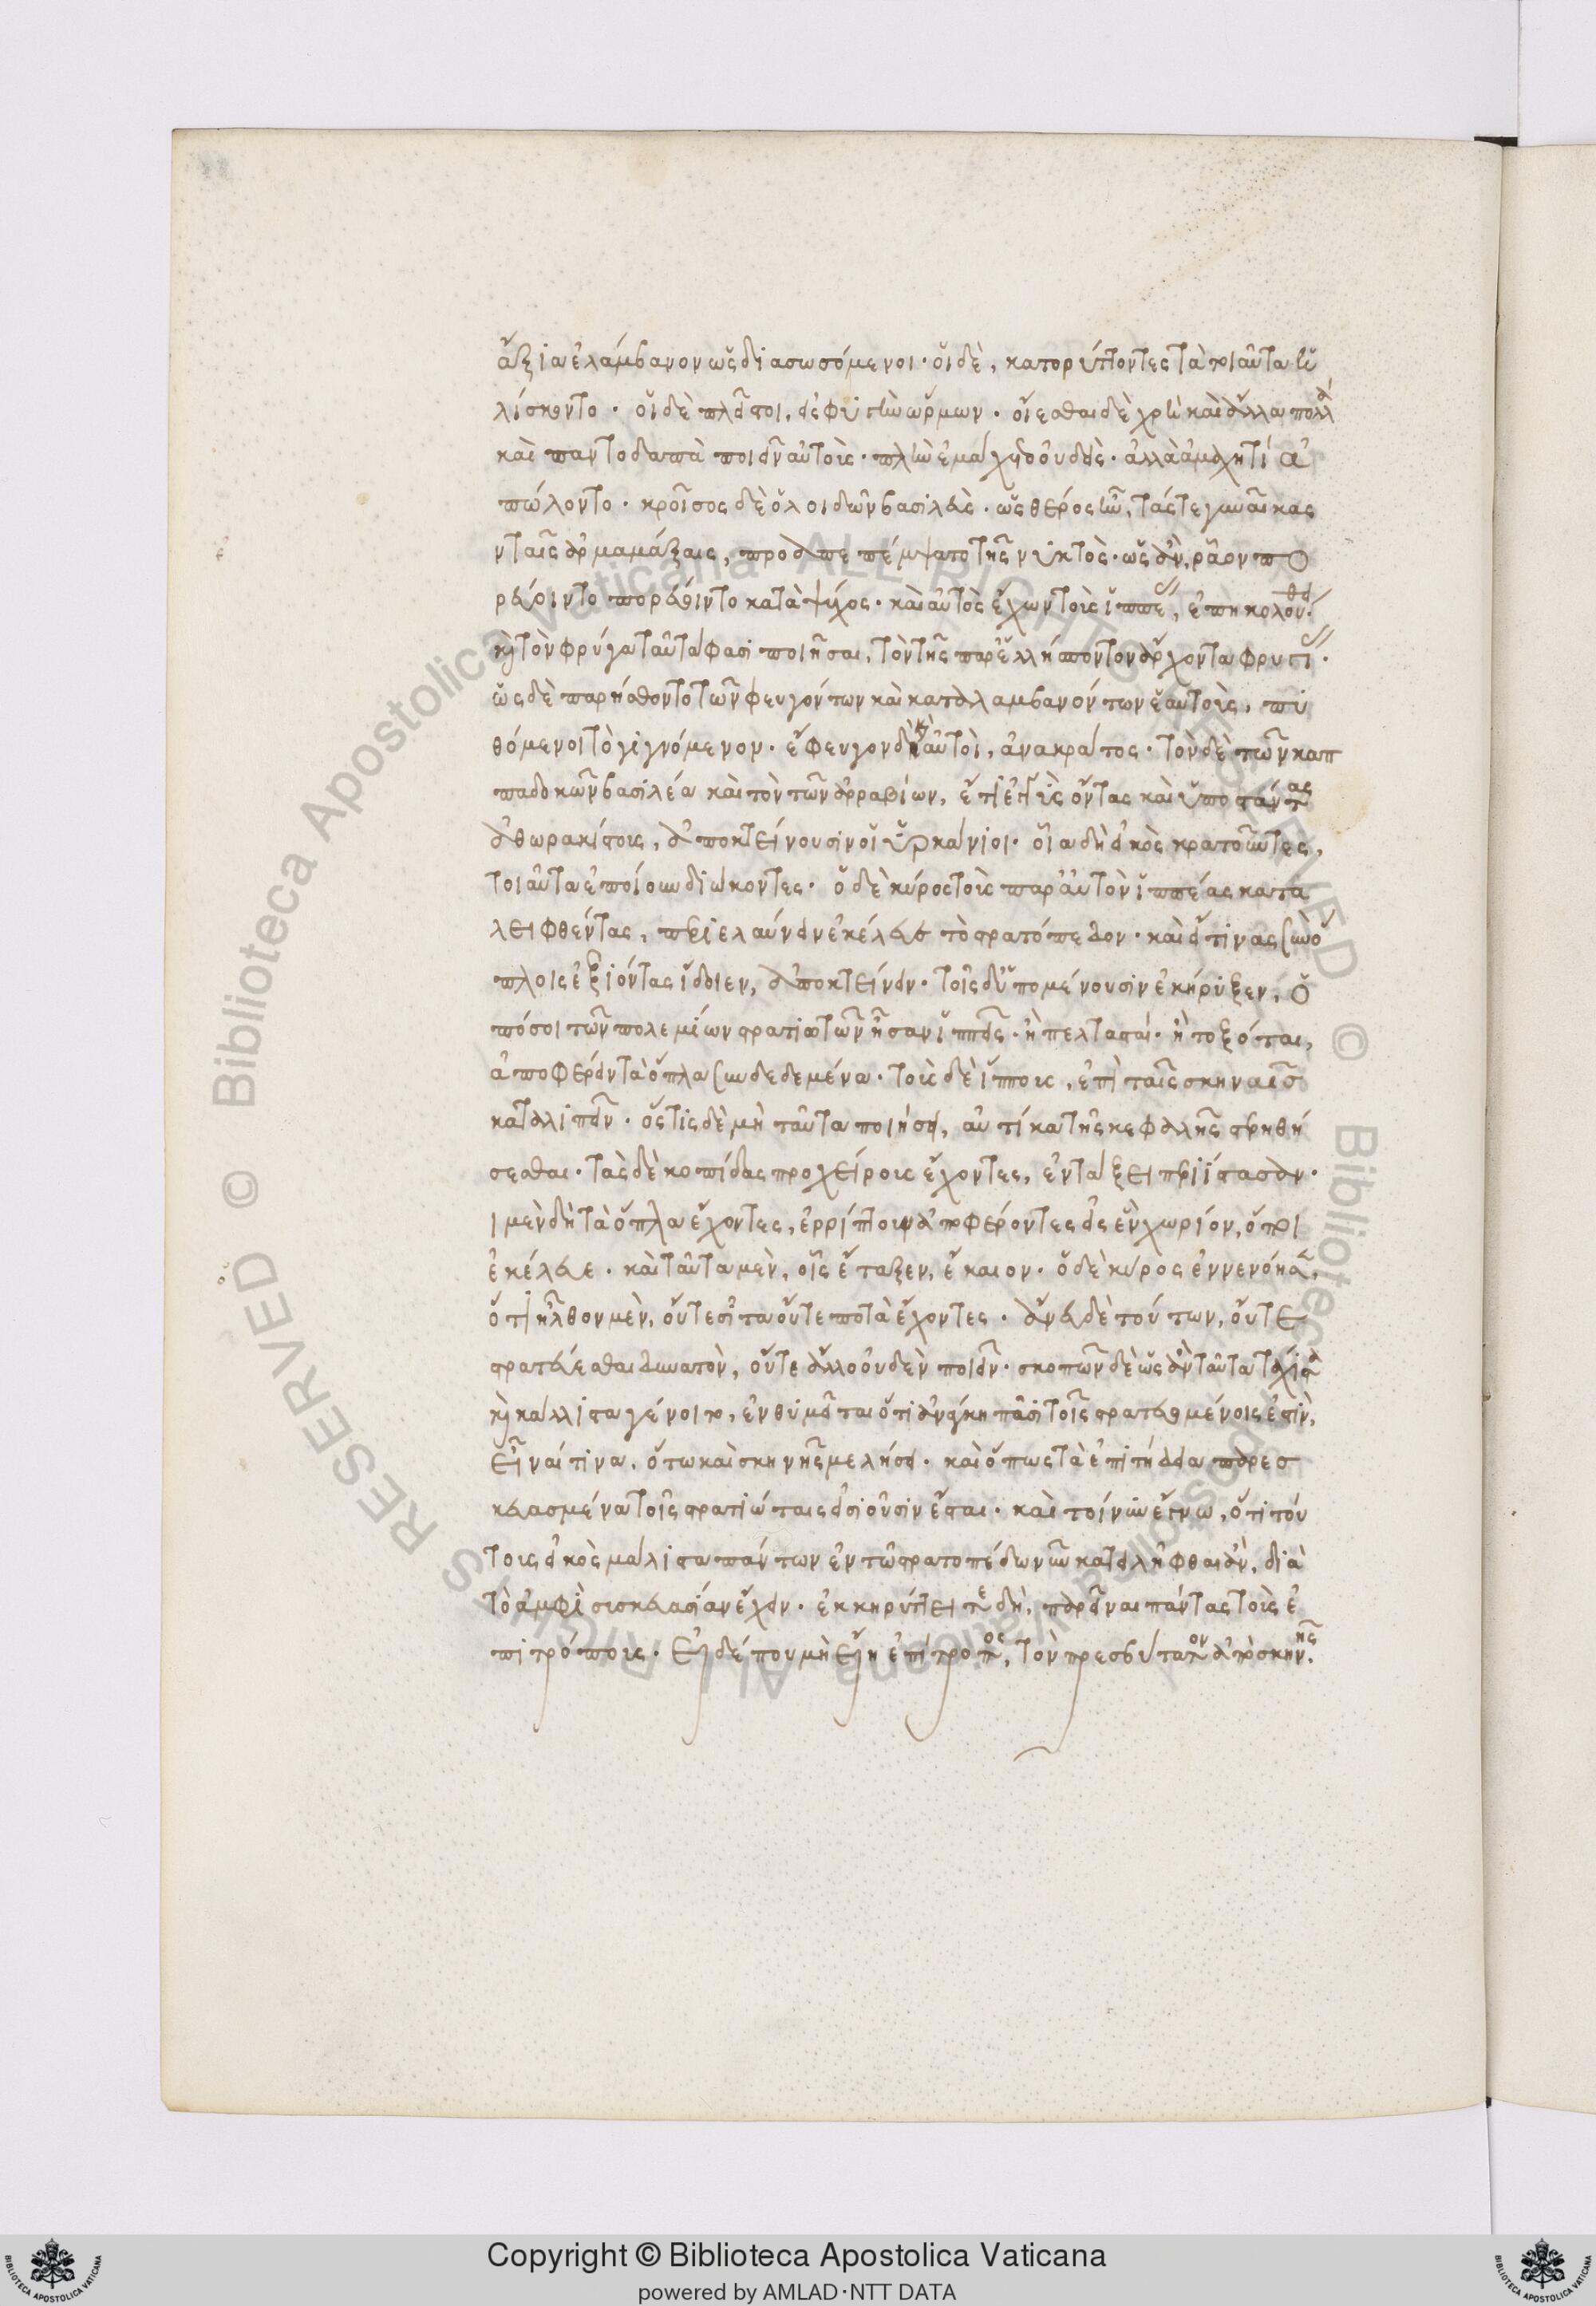 ἄξια ἐλάμβανον ὡς διασωσόμενοι· οἱ δὲ, κατορύττοντες τὰ τοιαῦτα ἡ
λίσκοντο· οἱ δὲ πλεῖστοι, ἔφευγον ὅρμων· οἴεσθαι δὲ χρὴ καὶ ἄλλα πολλὰ
καὶ παντοδαπὰ ποιεῖν αὐτοὺς· πλὴν ἐμάχετο οὐδεὶς· ἀλλὰ ἀμαχητὶ ἀ
πώλοντο· κροῖσος δὲ ὁ λυδῶν βασιλεὺς· ὡς θέρος ἦν, τάς τε γυναῖκας
ν ταῖς ἁρμαμάξαις, προαπεπέμψατο τῆς νυκτὸς· ὡς ἂν, ρᾷον πο
ρεύοιντο πορεύοιντο κατὰ ψύχος· καὶ αὐτὸς ἔχων τοὺς ἱππέας, ἐπηκολούθει·
καὶ τὸν φρύγα ταῦτά φασι ποιῆσαι, τὸν τῆς παρ' ἑλλήσποντον ἄρχοντα φρυγίας·
ὡς δὲ παρῄσθοντο τῶν φευγόντων καὶ καταλαμβανόντων ἑαυτοὺς, πυ
θόμενοι τὸ γιγνόμενον· ἔφευγον δὴ καὶ αὐτοὶ, ἀνακράτος· τὸν δὲ τῶν καπ
παδοκῶν βασιλέα καὶ τὸν τῶν ἀρραβίων, ἔτι ἐγγὺς ὄντας καὶ ὑποστάντας
ἀθωρακίστους, ἀποκτείνουσιν οἱ ὑρκάνιοι· οἷα δὴ εἰκὸς κρατοῦντες,
τοιαῦτα ἐποίουν διώκοντες· ὁ δὲ κύρος τοὺς παρ' αὐτὸν ἱππέας κατα
λειφθέντας, περιελαύνειν ἐκέλευσε τὸ στρατόπεδον· καὶ εἴ τινας σὺν ὅ
πλοις ἐξιόντας ἴδοιεν, ἀποκτείνειν· τοῖς δ' ὑπομένουσιν ἐκήρυξεν, ὁ
πόσοι τῶν πολεμίων στρατιωτῶν ἦσαν ἱππεῖς· ἢ πελτασταί· ἢ τοξόται,
ἀποφέρειν τὰ ὅπλα συνδεδεμένα· τοὺς δὲ ἵππους, ἐπὶ ταῖς σκηναῖς
καταλιπεῖν· ὅστις δὲ μὴ ταῦτα ποιήσει, αὐτίκα τῆς κεφαλῆς στερηθή
σεσθαι· τὰς δὲ κοπίδας προχείρους ἔχοντες, ἐν τάξει περιίστασαν·
ι μὲν δὴ τὰ ὅπλα ἔχοντες, ἐρρίπτουν ἀποφέροντες εἰς ἓν χωρίον, ὅποι
ἐκέλευε· καὶ ταῦτα μὲν, οἷς ἔταξεν, ἔκαιον· ὁ δὲ κύρος ἐννενόησεν,
ὅτι ἦλθον μὲν, οὔτε σῖτα οὔτε ποτὰ ἔχοντες· ἄνευ δὲ τούτων, οὔτε
στρατεύεσθαι δυνατὸν, οὔτε ἄλλο οὐδὲν ποιεῖν· σκοπῶν δὲ ὡς ἂν ταῦτα τάχιστα
καὶ κάλλιστα γένοιτο, ἐνθυμεῖται ὅτι ἀνάγκη πᾶσι τοῖς στρατευομένοις ἐστὶν,
εἶναί τινα, ὅτω καὶ σκηνῆς μελήσει· καὶ ὅπως τὰ ἐπιτήδεια παρεσ
κευασμένα τοῖς στρατιώταις εἰσιοῦσιν ἔσται· καὶ τοίνυν ἔγνω, ὅτι τού
τους εἰκὸς μάλιστα πάντων ἐν τῶ στρατοπέδω νῦν καταλειφθαι ἂν, διὰ
τὸ ἀμφὶ συσκευασίαν ἔχειν· ἐκκηρύττει τε δὴ, παρεῖναι πάντας τοὺς ἐ
πιτρόπους· εἰ δέ που μὴ εἴη ἐπίτροπος, τὸν πρεσβύτατον ἀπὸ σκηνῆς·